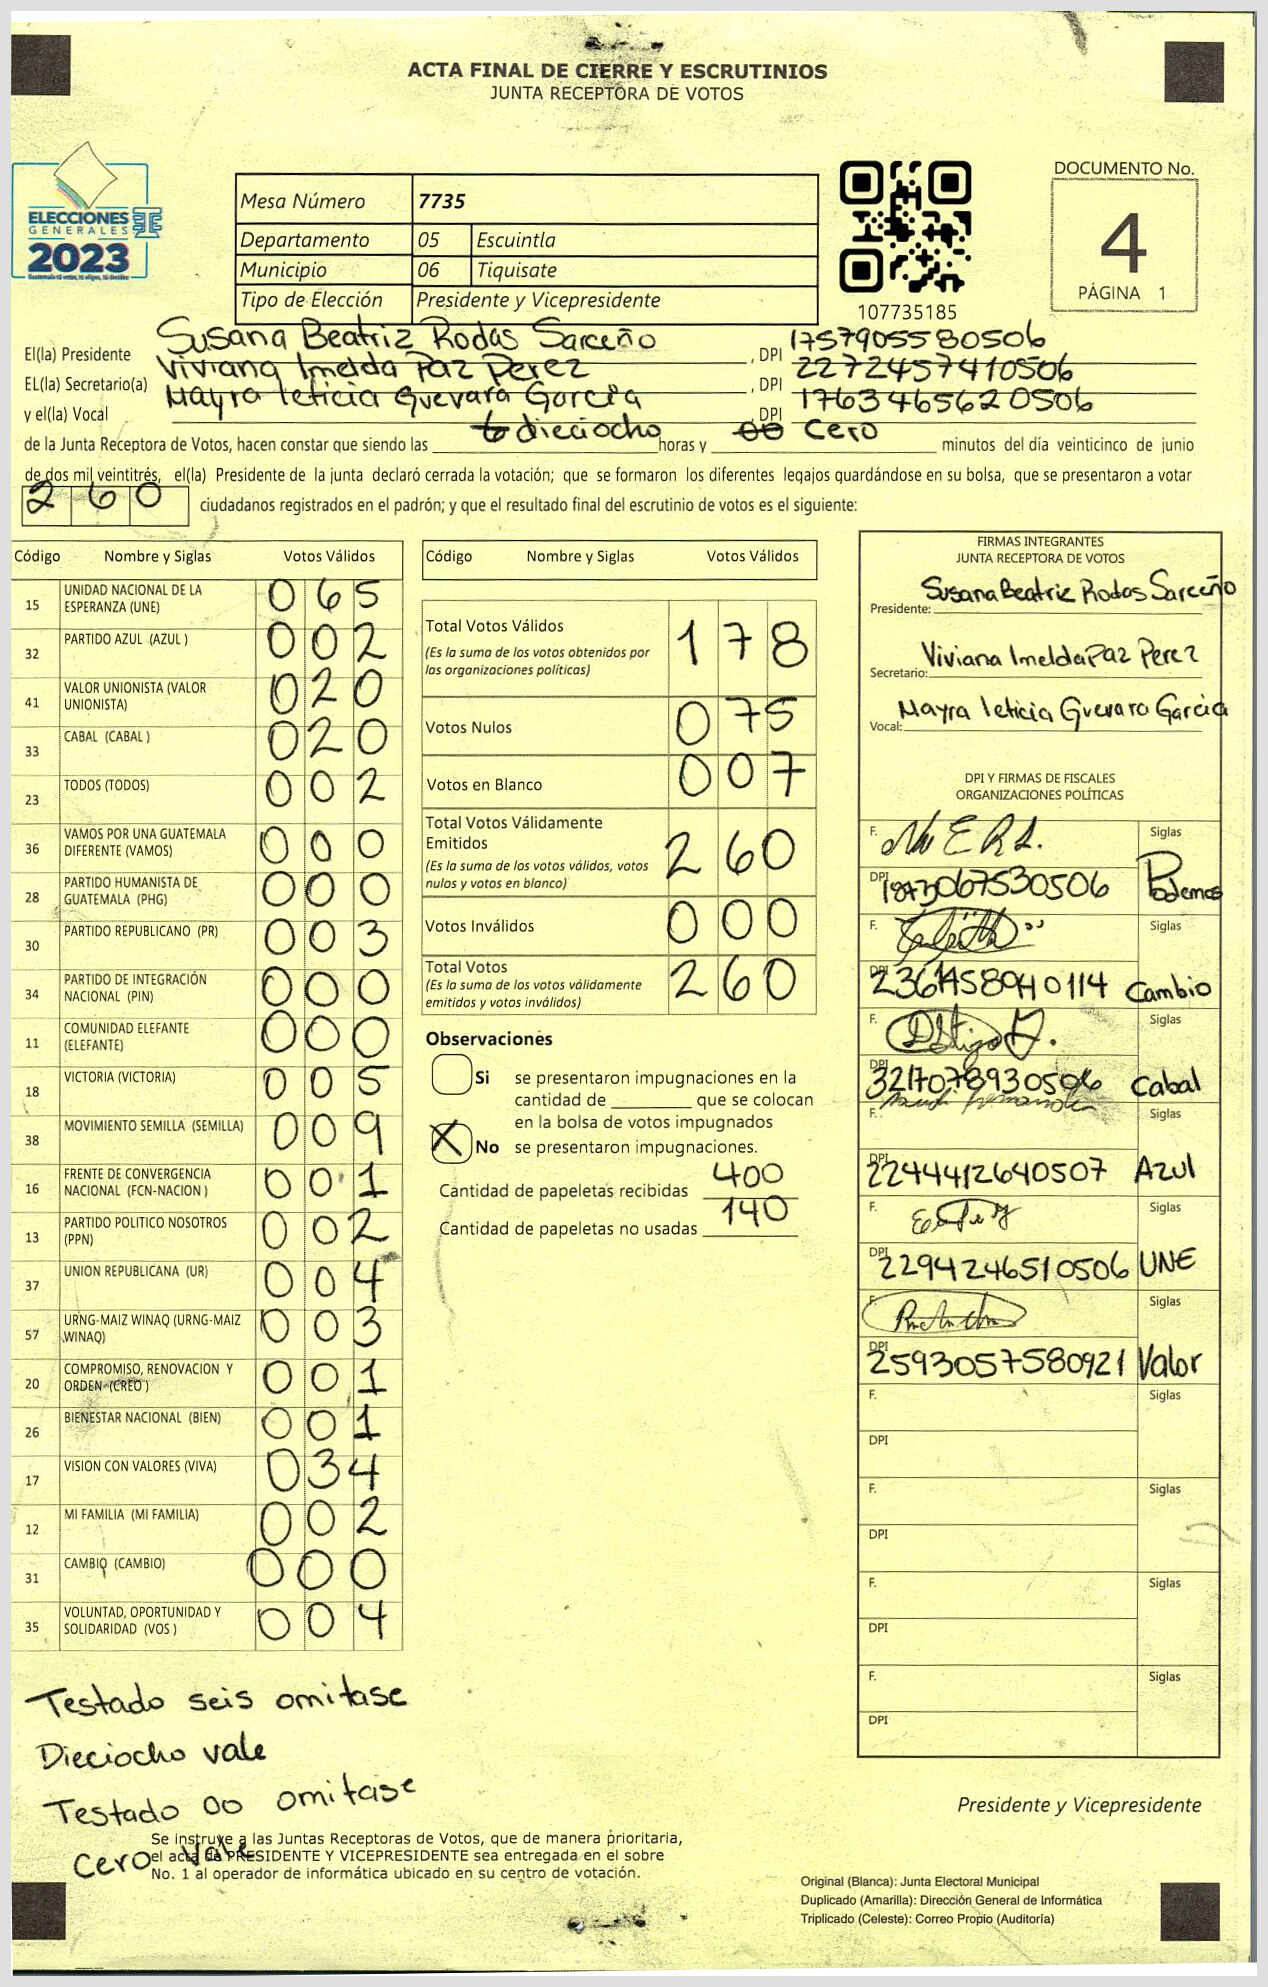 ACTA FINAL DE CIERRE Y ESCRUTINIOS
JUNTA RECEPTORA DE VOTOS
ELECCIONES
GENERALES
2023
Mesa Número 7735
Departamento 05 Escuintla
Municipio 06 Tiquisate
Tipo de Elección Presidente y Vicepresidente
107735185
DOCUMENTO No.
4
PÁGINA 1
El(la) Presidente Susana Beatriz Rodas Sarceño, DPI 1757905580506
EL(la) Secretario(a) Viviana Imelda Paz Perez, DPI 2272457410506
y el(la) Vocal Mayra leticia Guevara Garcia, DPI 1763465620506
de la Junta Receptora de Votos, hacen constar que siendo las 6 dieciocho horas y 00 Cero minutos del día veinticinco de junio
de dos mil veintitrés, el(la) Presidente de la junta declaró cerrada la votación; que se formaron los diferentes legajos guardándose en su bolsa, que se presentaron a votar
260 ciudadanos registrados en el padrón; y que el resultado final del escrutinio de votos es el siguiente:
Código Nombre y Siglas Votos Válidos
15 UNIDAD NACIONAL DE LA ESPERANZA (UNE) 065
32 PARTIDO AZUL (AZUL ) 002
41 VALOR UNIONISTA (VALOR UNIONISTA) 020
33 CABAL (CABAL ) 020
23 TODOS (TODOS) 002
36 VAMOS POR UNA GUATEMALA DIFERENTE (VAMOS) 000
28 PARTIDO HUMANISTA DE GUATEMALA (PHG) 000
30 PARTIDO REPUBLICANO (PR) 003
34 PARTIDO DE INTEGRACIÓN NACIONAL (PIN) 000
11 COMUNIDAD ELEFANTE (ELEFANTE) 000
18 VICTORIA (VICTORIA) 005
38 MOVIMIENTO SEMILLA (SEMILLA) 009
16 FRENTE DE CONVERGENCIA NACIONAL (FCN-NACION ) 001
13 PARTIDO POLITICO NOSOTROS (PPN) 002
37 UNION REPUBLICANA (UR) 004
57 URNG-MAIZ WINAQ (URNG-MAIZ WINAQ) 003
20 COMPROMISO, RENOVACION Y ORDEN (CREO ) 001
26 BIENESTAR NACIONAL (BIEN) 001
17 VISION CON VALORES (VIVA) 034
12 MI FAMILIA (MI FAMILIA) 002
31 CAMBIO (CAMBIO) 000
35 VOLUNTAD, OPORTUNIDAD Y SOLIDARIDAD (VOS ) 004
Código Nombre y Siglas Votos Válidos
Total Votos Válidos 178
(Es la suma de los votos obtenidos por
las organizaciones políticas)
Votos Nulos 075
Votos en Blanco 007
Total Votos Válidamente
Emitidos 260
(Es la suma de los votos válidos, votos
nulos y votos en blanco)
Votos Inválidos 000
Total Votos 260
(Es la suma de los votos válidamente
emitidos y votos inválidos)
Observaciones
Si se presentaron impugnaciones en la
cantidad de ________ que se colocan
en la bolsa de votos impugnados
X No se presentaron impugnaciones.
Cantidad de papeletas recibidas 400
Cantidad de papeletas no usadas 140
FIRMAS INTEGRANTES
JUNTA RECEPTORA DE VOTOS
Presidente: Susana Beatriz Rodas Sarceño
Secretario: Viviana Imelda Paz Perez
Vocal: Mayra leticia Guevara Garcia
DPI Y FIRMAS DE FISCALES
ORGANIZACIONES POLÍTICAS
F. Siglas
DPI 1873067530506 Podemos
F. Siglas
DPI Cambio
F. Siglas
DPI 3217078930506 Cabal
F. Siglas
DPI 2244412640507 Azul
F. Siglas
DPI 2294246510506 UNE
F. Siglas
DPI 2593057580921 Valor
F. Siglas
DPI
F. Siglas
DPI
F. Siglas
DPI
F. Siglas
DPI
Testado seis omitase
Dieciocho vale
Testado 00 omitase
Cero vale
Se instruye a las Juntas Receptoras de Votos, que de manera prioritaria,
el acta de PRESIDENTE Y VICEPRESIDENTE sea entregada en el sobre
No. 1 al operador de informática ubicado en su centro de votación.
Presidente y Vicepresidente
Original (Blanca): Junta Electoral Municipal
Duplicado (Amarilla): Dirección General de Informática
Triplicado (Celeste): Correo Propio (Auditoría)